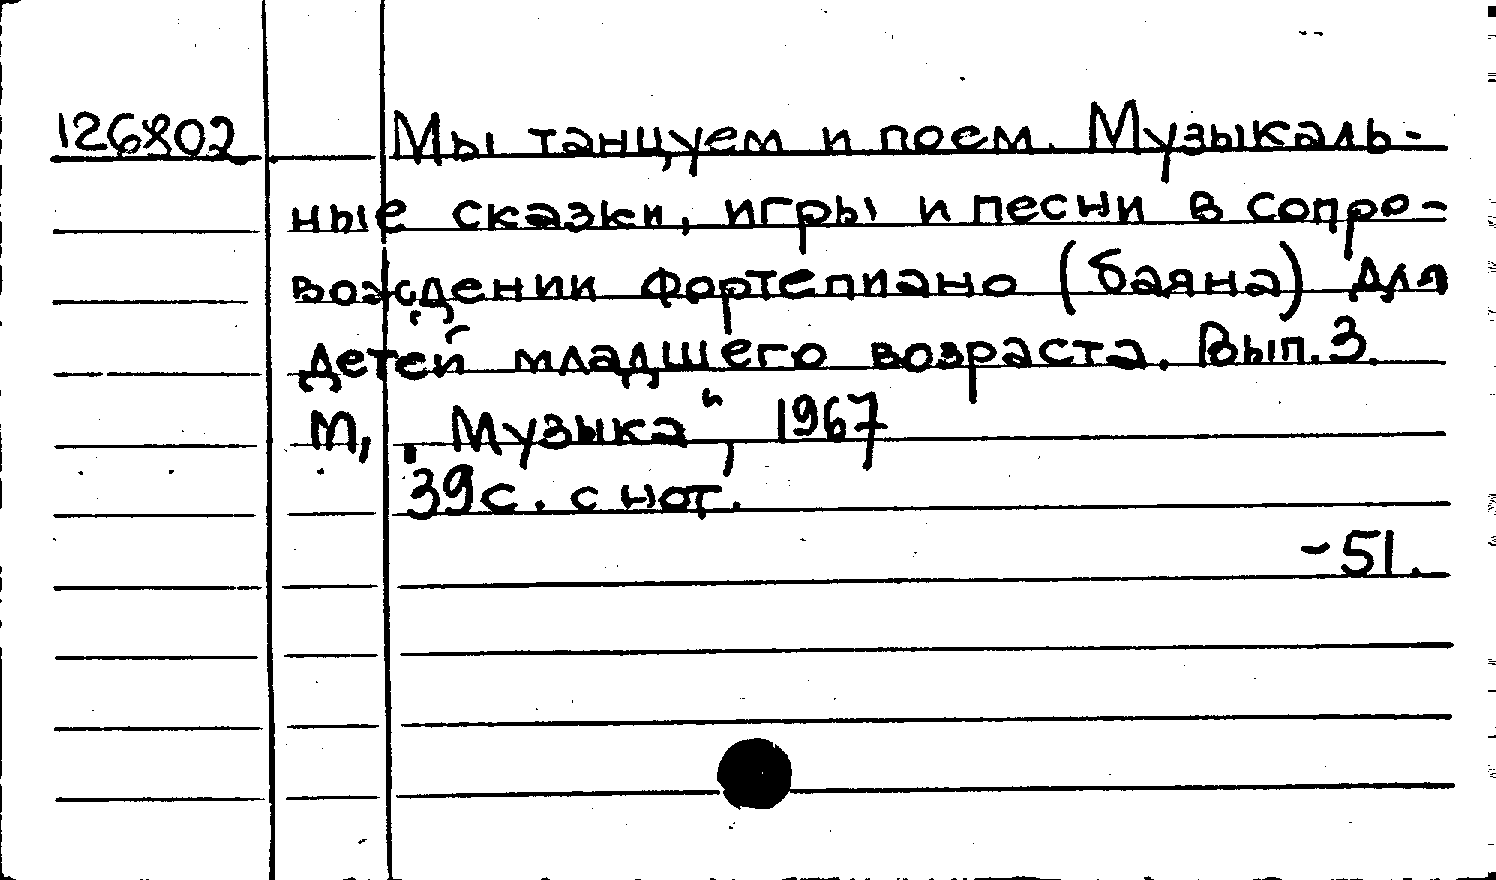 126802 Мы танцуем и поем. Музыкаль-
ные сказки, игры и песни в сопро-
вождении фортепиано (баяна) для
детей младшего возраста. Вып. 3.
М, „Музыка", 1967
39с. с нот.
-51.